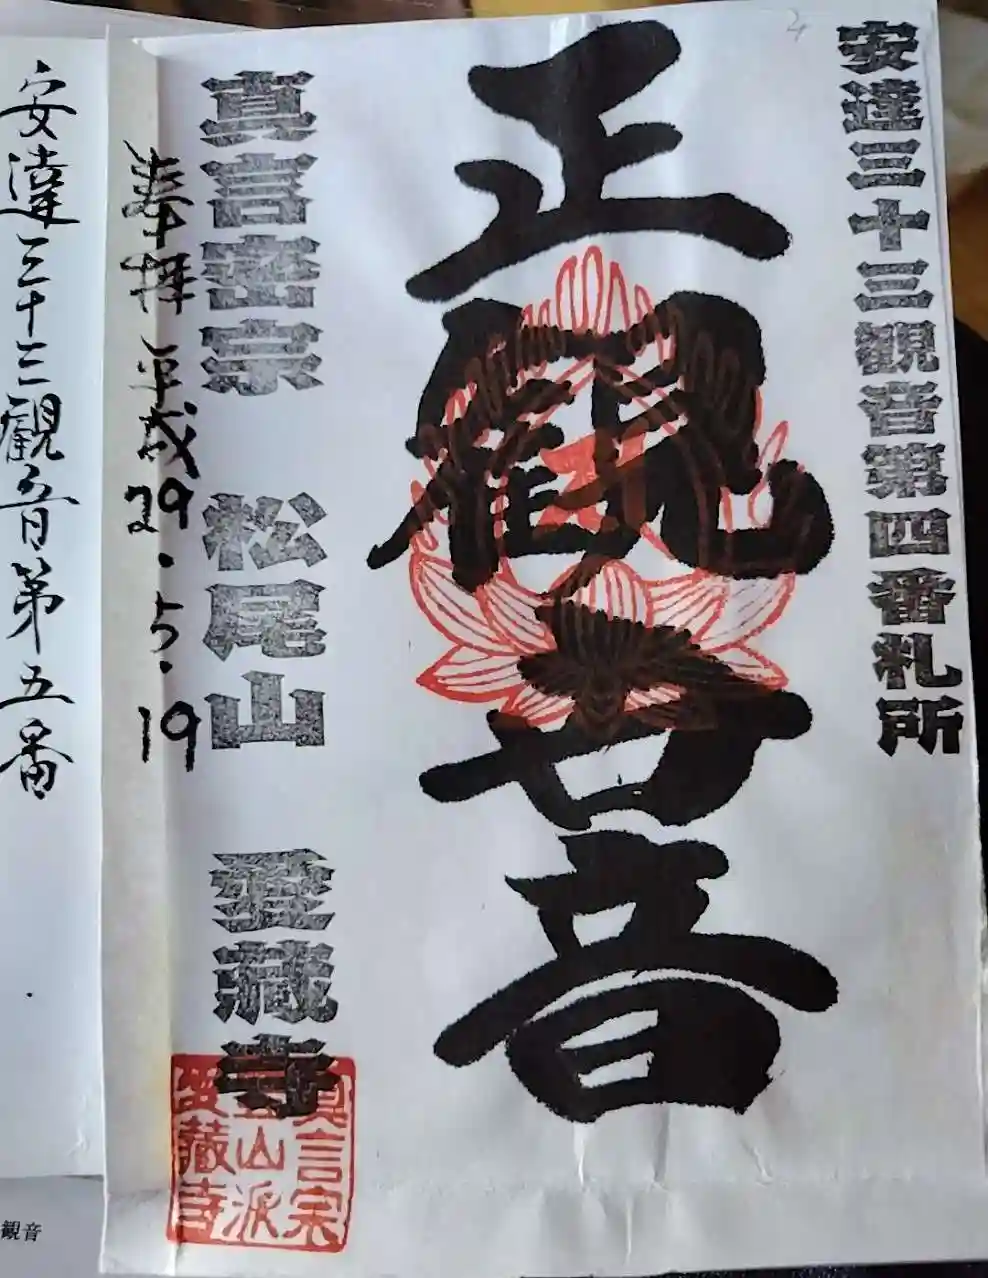 安達三十三観音第四番札所
正観世音
真言密宗　松尾山　愛藏寺
奉拝　平成29.5.19
真言宗
豊山派
愛藏寺
安達三十三觀音第五番
観音